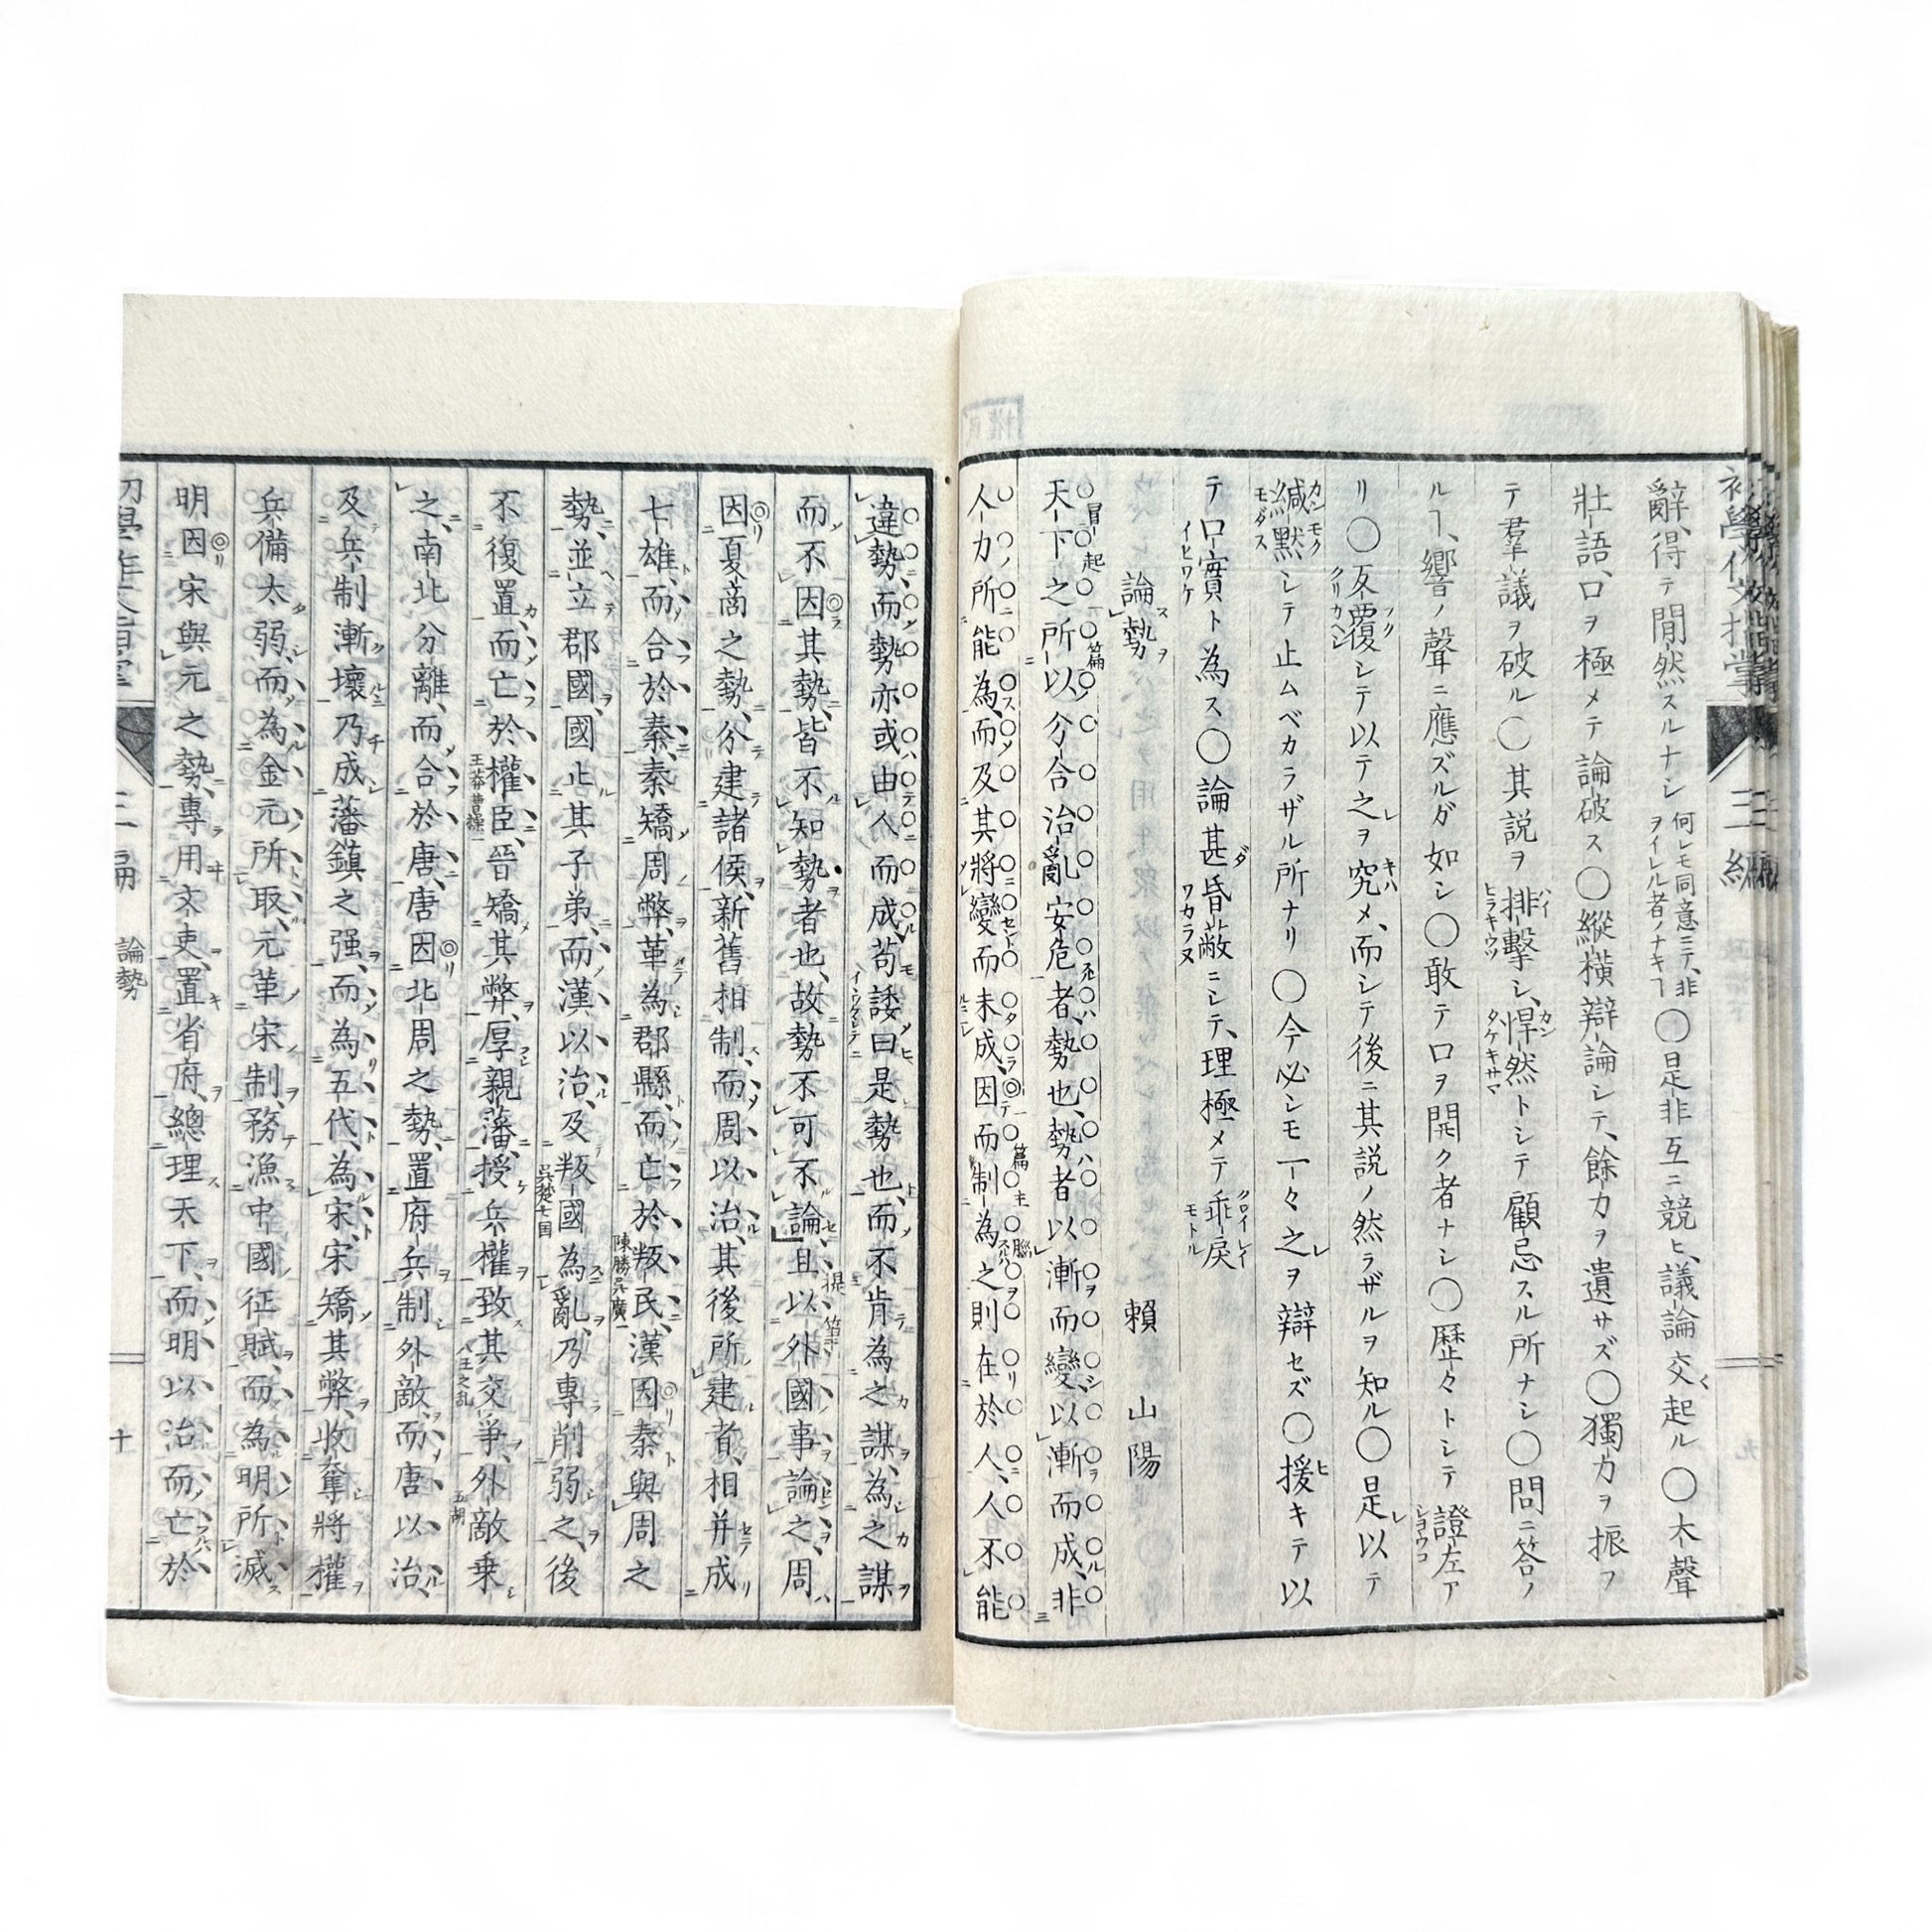 辭、得テ閒然スルナシ何レモ同意ニテ、非ヲイレル者ノナキヿ〇是非互ニ競ヒ、議論交起ル〇大聲
壯語、口ヲ極メテ論破ス〇縱橫辯論シテ、餘力ヲ遺サズ〇獨力ヲ振フ
テ羣議ヲ破ル〇其説ヲ排擊シ、悍然トシテ顧忌スル所ナシ〇問ニ答ノ
ルヿ、響ノ聲ニ應ズルガ如シ〇敢テ口ヲ開ク者ナシ〇歷々トシテ證左ア
リ〇反覆シテ以テ之ヲ究メ、而シテ後ニ其説ノ然ラザルヲ知ル〇是以テ
緘黙シテ止ムベカラザル所ナリ〇今必シモ一々之ヲ辯セズ〇援キテ以
テ口實ト為ス〇論甚ダ昏蔽ニシテ、理極メテ乖戾
論勢 賴山陽
天下之所以分合治亂安危者、勢也、勢者以漸而變、以漸而成、非
人力所能為、而及其將變而未成、因而制為之、則在於人、人不能
違勢、而勢亦或由人而成、苟諉曰是勢也、而不肯為之謀、為之謀
而不因其勢、皆不知勢者也、故勢不可不論、且以外國事論之、周
因夏商之勢、分建諸侯、新舊相制、而周以治、其後所建者、相并成
七雄、而合於秦、秦矯周弊、革為郡縣、而亡於叛民、漢因秦與周之
勢、並立郡國、國止其子弟、而漢以治、及叛國為亂、乃專削弱之、後
不復置、而亡於權臣、晉矯其弊、厚親藩、授兵權、致其交爭、外敵乘
之、南北分離、而合於唐、唐因北周之勢、置府兵、制外敵、而唐以治、
及兵制漸壞、乃成藩鎮之强、而為五代、為宋、宋矯其弊、收奪將權
兵備太弱、而為金元所取、元革宋制、務漁中國征賦、而為明所滅
明因宋與元之勢、專用文吏、置省府、總理天下、而明以治、而亡於
三編 論勢 十